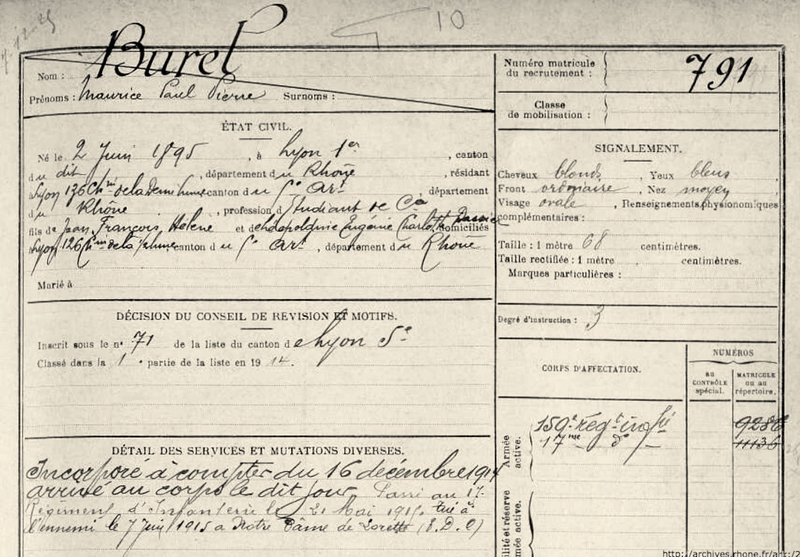 10
Burel
Nom :
Prénoms : Maurice Paul Pierre Surnoms :
Numéro matricule
du recrutement :
791
Classe
de mobilisation :
ÉTAT CIVIL.
Né le 2 Juin 1895, à Lyon 1er, canton
du dit, département du Rhône, résidant
Lyon 136 Ch. de la Demi Lune canton du 5e Arr, département
du Rhône, profession d'Étudiant de
fils de Jean, François, Hélène et de Eugénie domiciliés
Lyon canton du 5e Arr, département du Rhône
Marié à
SIGNALEMENT.
Cheveux blonds, Yeux bleus
Front ordinaire, Nez moyen
Visage ovale, Renseignements physionomiques
complémentaires :
Taille : 1 mètre 68 centimètres.
Taille rectifiée : 1 mètre centimètres.
Marques particulières :
Degré d'instruction : 3
DÉCISION DU CONSEIL DE REVISION ET MOTIFS.
Inscrit sous le n° 71 de la liste du canton de Lyon 5e
Classé dans la 1e partie de la liste en 1914.
CORPS D'AFFECTATION.
NUMÉROS
AU
CONTRÔLE
spécial.
MATRICULE
ou au
répertoire.
Armée
active.
159e régt infie 9286
17me do 11136
DÉTAIL DES SERVICES ET MUTATIONS DIVERSES.
Incorporé à compter du 16 décembre 1914
arrivé au corps le dit jour Passé au 17e
Régiment d'Infanterie le 21 Mai 1915. Tué à
l'ennemi le 7 Juin 1915 à Notre Dame de Lorette (P.D.C)